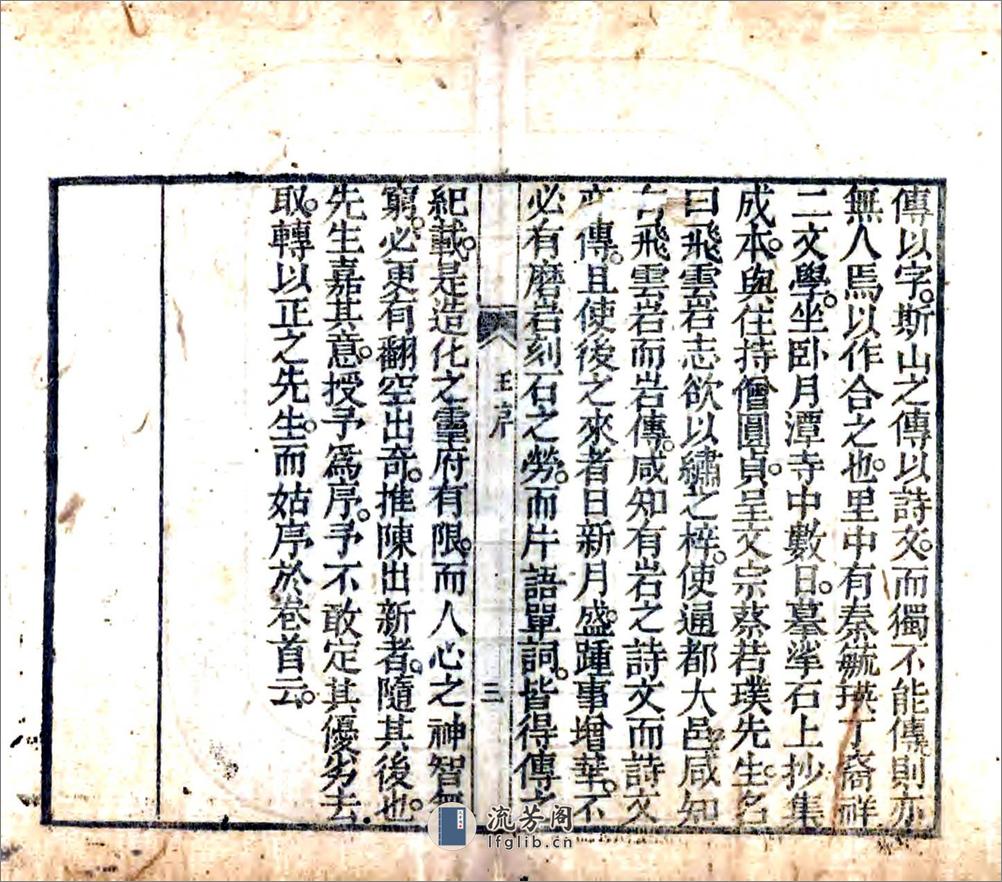 傳以字。斯山之傳以詩文。而獨不能傳。則亦
無人焉以作合之也。里中有秦毓瑛丁裔祥
二文學。坐卧月潭寺中數日。摹挲石上抄集
成本。與住持僧圓貞。呈文宗蔡若璞先生。名
曰飛雲岩志欲以繡之梓。使通都大邑咸知
有飛雲岩而岩傳。咸知有岩之詩文而詩文
亦傳。且使後之來者日新月盛。踵事增華。不
必有磨岩刻石之勞。而片語單詞。皆得傳之
王序 三
紀載。是造化之靈府有限。而人心之神智無
窮。必更有翻空出奇。推陳出新者。隨其後也。
先生嘉其意。授予為序。予不敢定其優劣去
取。轉以正之先生。而姑序於卷首云。
流芳阁
lfglib.cn